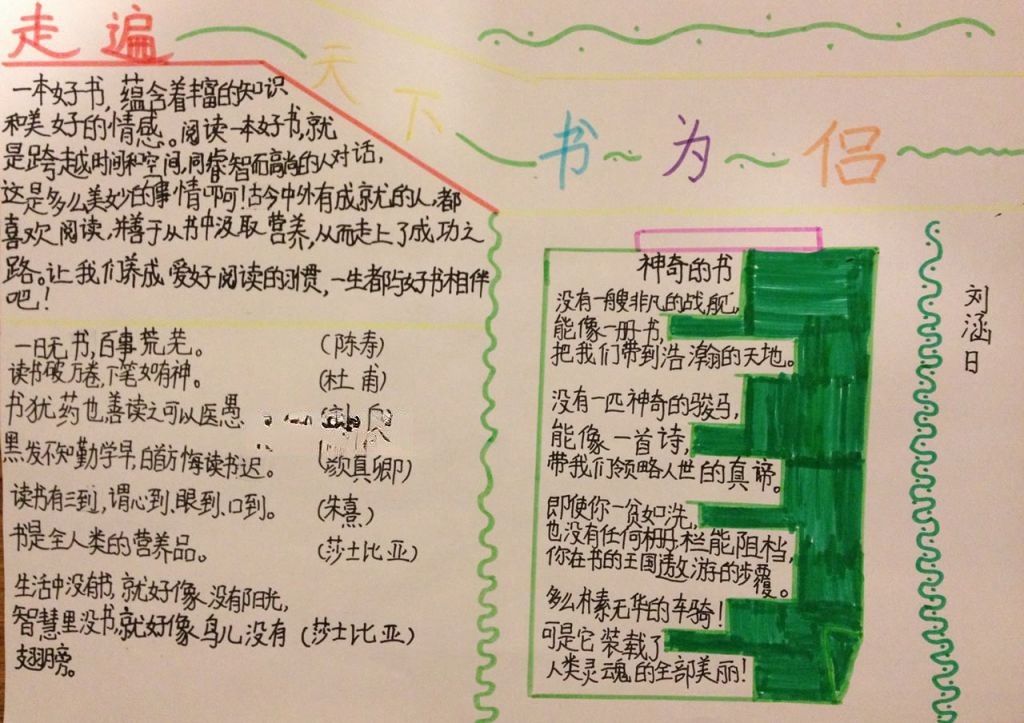 走遍
天下
书为侣
一本好书，蕴含着丰富的知识
和美好的情感。阅读一本好书，就
是跨越时间和空间，同睿智而高尚的人对话，
这是多么美妙的事情啊！古今中外有成就的人，都
喜欢阅读，并善于从书中汲取营养，从而走上了成功之
路。让我们养成爱好阅读的习惯，一生都与好书相伴
吧！
一日无书，百事荒芜。（陈寿）
读书破万卷，下笔如有神。（杜甫）
书犹药也，善读之可以医愚
黑发不知勤学早，白首方悔读书迟。（颜真卿）
读书有三到，谓心到、眼到、口到。（朱熹）
书是全人类的营养品。（莎士比亚）
生活中没有书，就好像没有阳光，
智慧里没书，就好像鸟儿没有（莎士比亚）
翅膀。
神奇的书
没有一艘非凡的战舰，
能像一册书，
把我们带到浩瀚的天地。
没有一匹神奇的骏马，
能像一首诗，
带我们领略人世的真谛。
即使你一贫如洗，
也没有任何栅栏能阻档，
你在书的王国遨游的步覆。
多么朴素无华的车骑！
可是它装载了
人类灵魂的全部美丽！
刘涵日